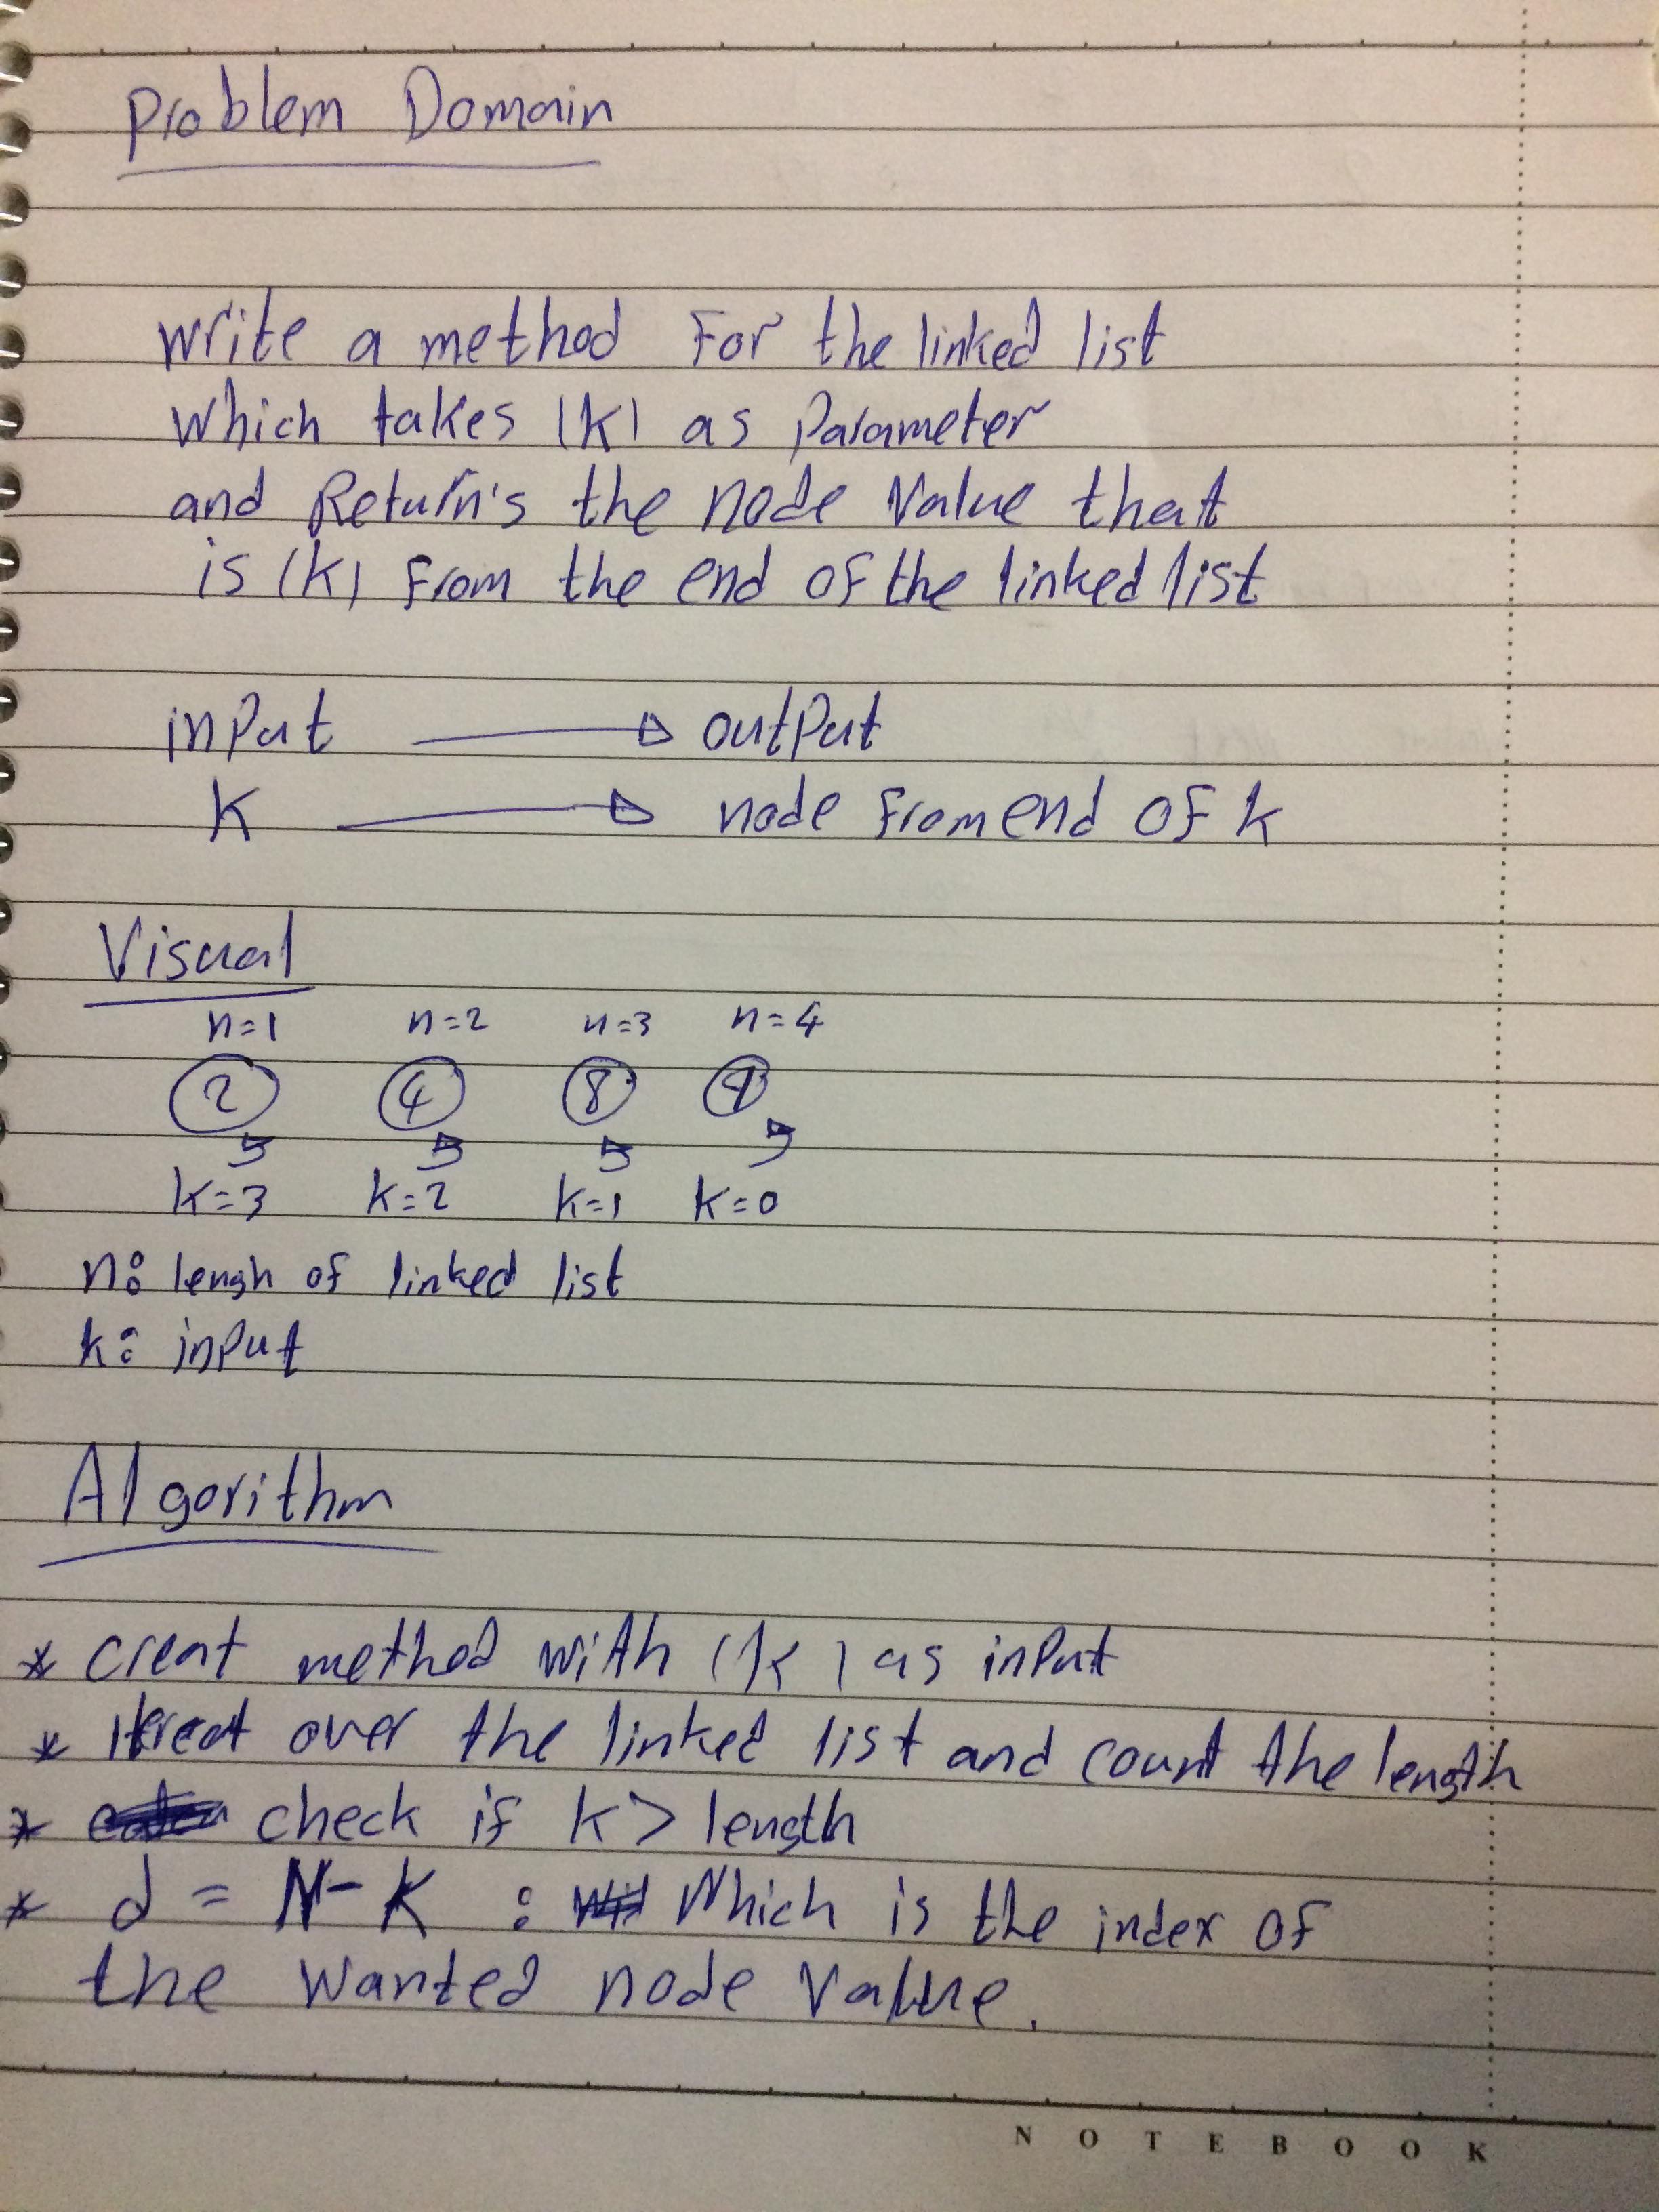 Problem Domain
write a method For the linked list
which takes (k) as parameter
and Return's the node Value that
is (k) From the end of the linked list
input output
k node from end of k
Visual
n=1 n=2 n=3 n=4
2 4 8
k=3 k=2 k=1 k=0
n: lengh of linked list
k: input
Algorithm
* creat method with (k) as input
* Itreat over the linked list and count the length
* check if k > length
* d = N - K : Which is the index of
the wanted node Value.
NOTEBOOK